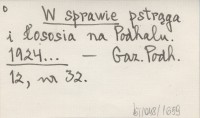 W sprawie pstrąga
i łososia na Podhalu.
1924... — Gaz. Podh.
12, nr 32.